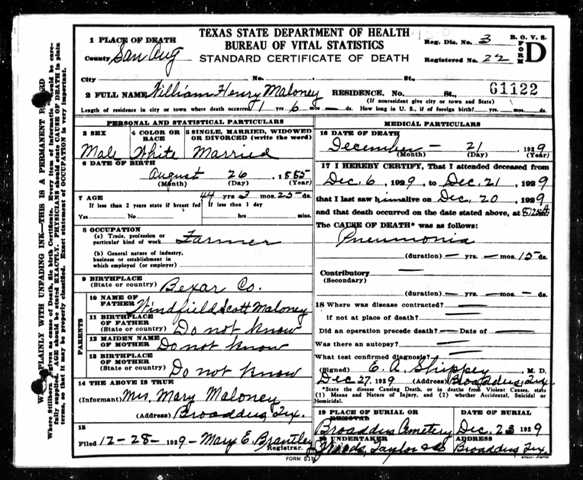 TEXAS STATE DEPARTMENT OF HEALTH
BUREAU OF VITAL STATISTICS
STANDARD CERTIFICATE OF DEATH
B. O. V. S.
FORM D
Reg. Dis. No. 3
Registered No. 22
1 PLACE OF DEATH
County San Aug
City No. St.
61122
2 FULL NAME William Henry Maloney RESIDENCE. No. St.
(If nonresident give city or town and State)
Length of residence in city or town where death occurred 11 yrs. 6 mos. — ds. How long in U. S., if of foreign birth?
PERSONAL AND STATISTICAL PARTICULARS
3 SEX 4 COLOR OR RACE 5 SINGLE, MARRIED, WIDOWED OR DIVORCED (write the word)
Male White Married
6 DATE OF BIRTH
August 26 1885
(Month) (Day) (Year)
7 AGE 44 3 25 ds.
If less than 2 years state if breast fed If less than 1 day
Yes No hrs. min.
8 OCCUPATION
(a) Trade, profession or particular kind of work Farmer
(b) General nature of industry, business or establishment in which employed (or employer)
9 BIRTHPLACE
(State or country) Bexar Co.
PARENTS
10 NAME OF FATHER Windfield Scott Maloney
11 BIRTHPLACE OF FATHER
(State or country) Do not know
12 MAIDEN NAME OF MOTHER Do not know
13 BIRTHPLACE OF MOTHER
(State or country) Do not know
14 THE ABOVE IS TRUE
(Informant) Mrs. Mary Maloney
(Address) Broaddus Tex.
15
Filed 12-28- 1929 Mary E. Brantley
Registrar.
MEDICAL PARTICULARS
16 DATE OF DEATH
December - 21 1929
(Month) (Day) (Year)
17 I HEREBY CERTIFY, That I attended deceased
from Dec. 6, 1929, to Dec. 21, 1929
that I last saw him alive on Dec. 20, 1929
and that death occurred on the date stated above, at
The CAUSE OF DEATH* was as follows:
Pneumonia
(duration) — yrs. — mos. 15 ds.
Contributory —
(Secondary)
(duration) — yrs. — mos. — ds.
18 Where was disease contracted?
if not at place of death?
Did an operation precede death? — Date of —
Was there an autopsy? —
What test confirmed diagnosis? —
(Signed) E. A. Shippey M. D.
Dec 27, 1929 (Address) Broaddus, Tex.
*State the Disease Causing Death, or in deaths from Violent Causes, state (1) Means and Nature of Injury, and (2) whether Accidental, Suicidal or Homicidal.
19 PLACE OF BURIAL OR REMOVAL DATE OF BURIAL
Broaddus Cemetery Dec. 23 1929
20 UNDERTAKER ADDRESS
Taylor & Co Broaddus Tex.